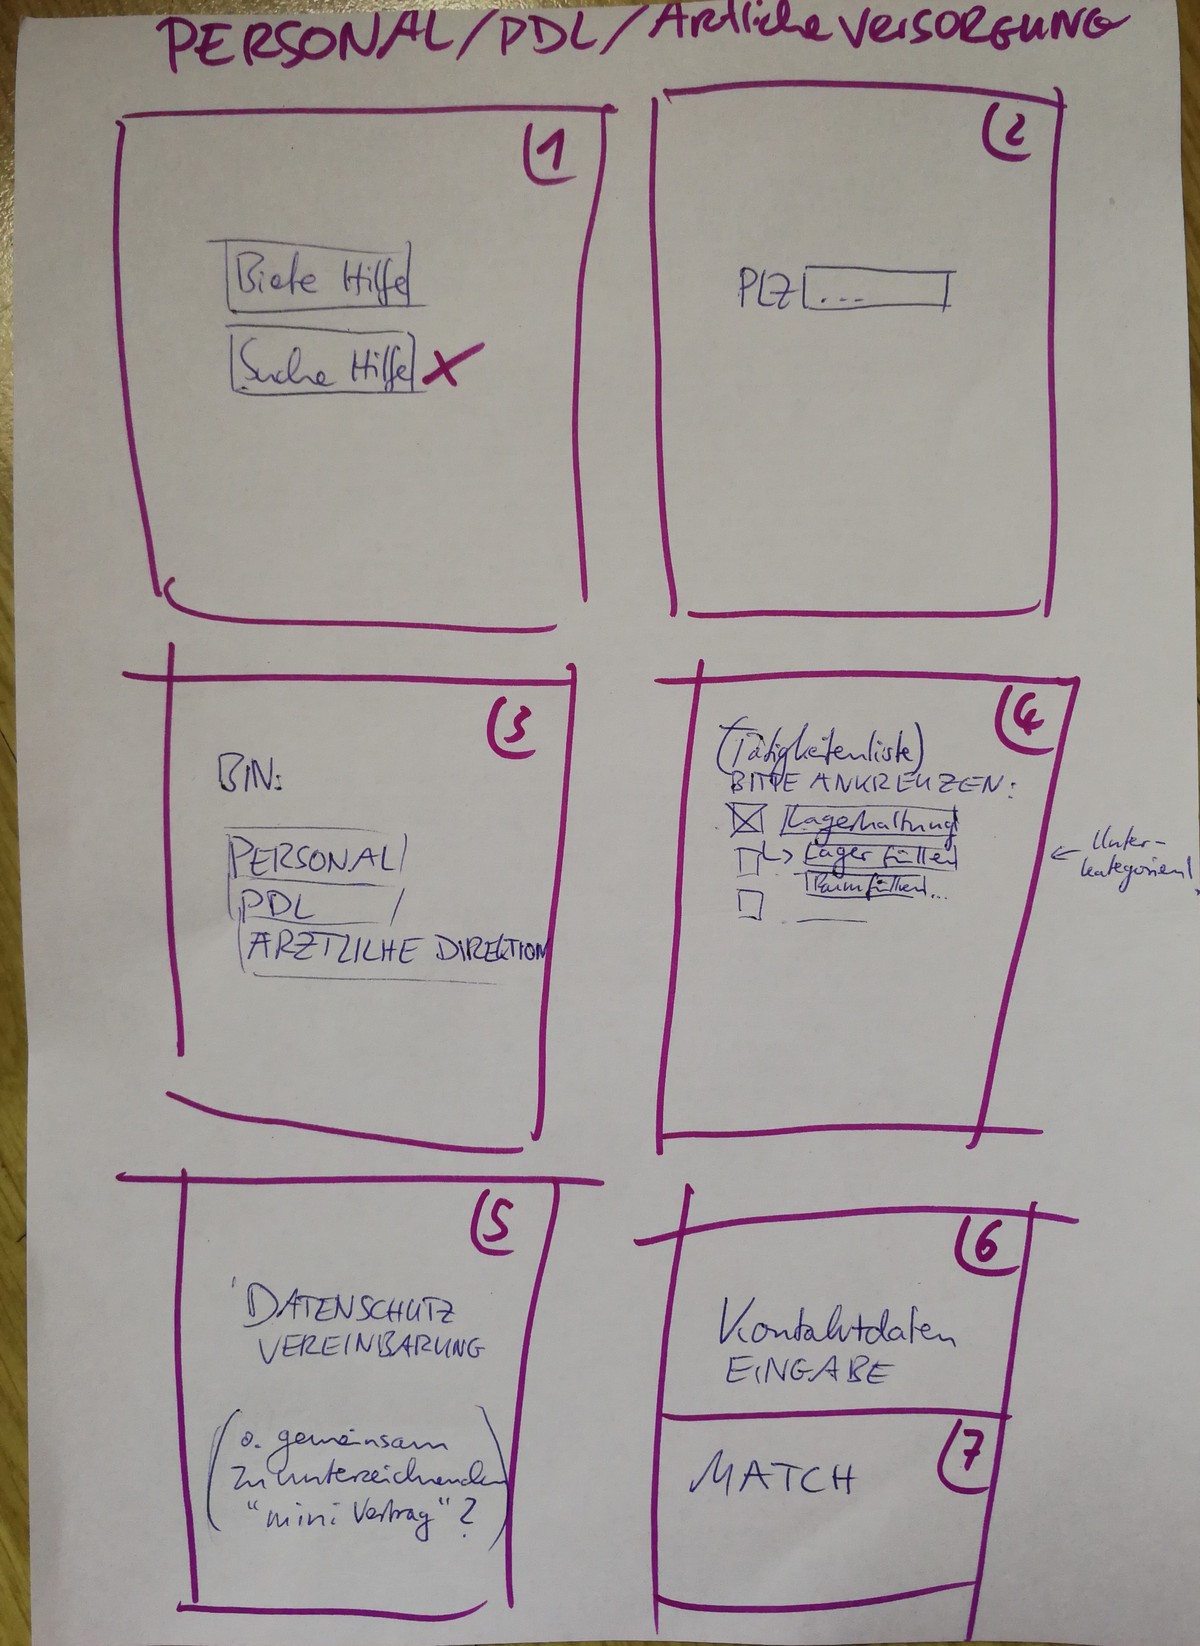 PERSONAL/PDL/Ärztliche VERSORGUNG
1
Biete Hilfe
Suche Hilfe X
2
PLZ ...
3
BIN:
PERSONAL/
PDL /
ÄRZTLICHE DIREKTION
4
(Tätigkeitenliste)
BITTE ANKREUZEN:
Lagerhaltung
Lager füllen
...
Unter-
kategorien!
5
DATENSCHUTZ
VEREINBARUNG
(o. gemeinsam
zu unterzeichnenden
"mini Vertrag"?)
6
Kontaktdaten
EINGABE
7
MATCH